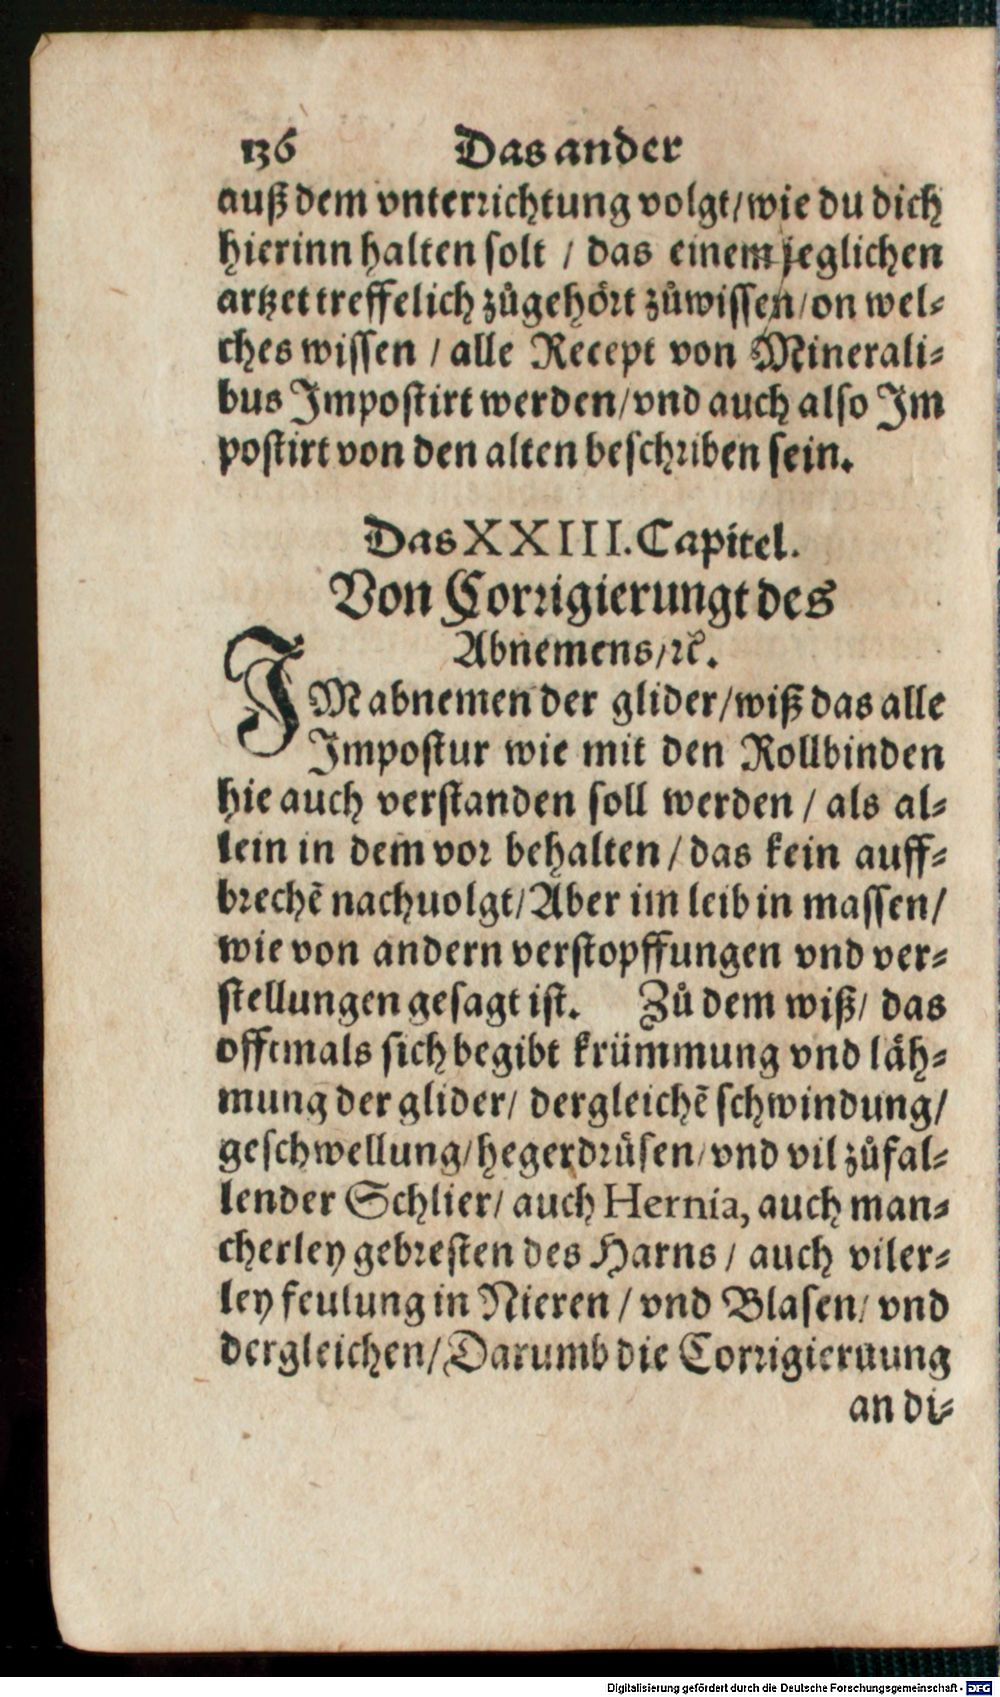 136 Das ander
auß dem vnterrichtung volgt/wie du dich
hierinn halten solt / das einem jeglichen
artzet treffelich zůgehört zůwissen/on wel⸗
ches wissen / alle Recept von Minerali⸗
bus Impostirt werden/vnd auch also Im
postirt von den alten beschriben sein.
Das XXIII. Capitel.
Von Corrigierungt des
Abnemens/ꝛc̃.
IM abnemen der glider/wiß das alle
Impostur wie mit den Rollbinden
hie auch verstanden soll werden / als al⸗
lein in dem vor behalten / das kein auff⸗
brechẽ nachuolgt/Aber im leib in massen/
wie von andern verstopffungen vnd ver⸗
stellungen gesagt ist. Zů dem wiß/ das
offtmals sich begibt krümmung vnd läh⸗
mung der glider/ dergleichẽ schwindung/
geschwellung/hegerdrüsen/vnd vil zůfal⸗
lender Schlier/ auch Hernia, auch man⸗
cherley gebresten des Harns / auch viler⸗
ley feulung in Nieren / vnd Blasen/ vnd
dergleichen/Darumb die Corrigieruung
an di⸗
Digitalisierung gefördert durch die Deutsche Forschungsgemeinschaft - DFG